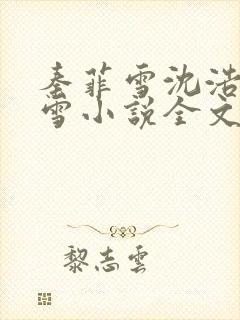 秦菲雪沈浩
雪小说全文
黎志云